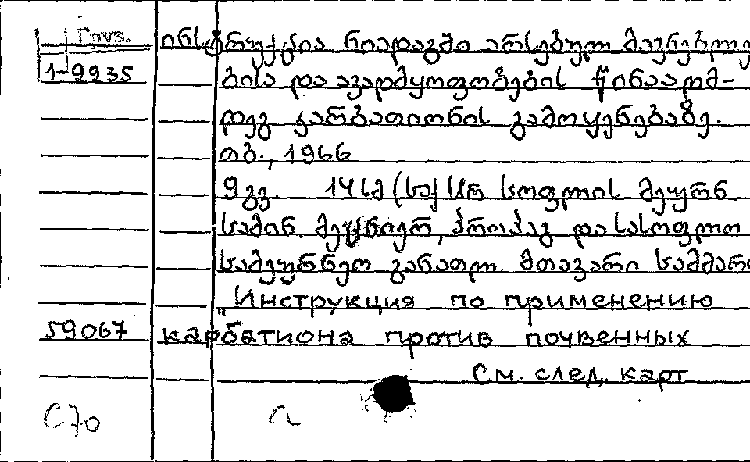 1-9935
ინსტრუქცია ნიადაგში არსებულ მავნებლე
ბისა და ავადმყოფობების წინააღმ-
დეგ კარბათიონის გამოყენებაზე.
თბ., 1966
9 გვ. 14 სმ (საქ სსრ სოფლის მეურნ
სამინ. მეცნიერ, პროპაგ და სასოფლო
სამეურნეო განათლ მთავარი სამმარ
"Инструкция по применению
59067 карбатиона против почвенных
См. след. карт
C70